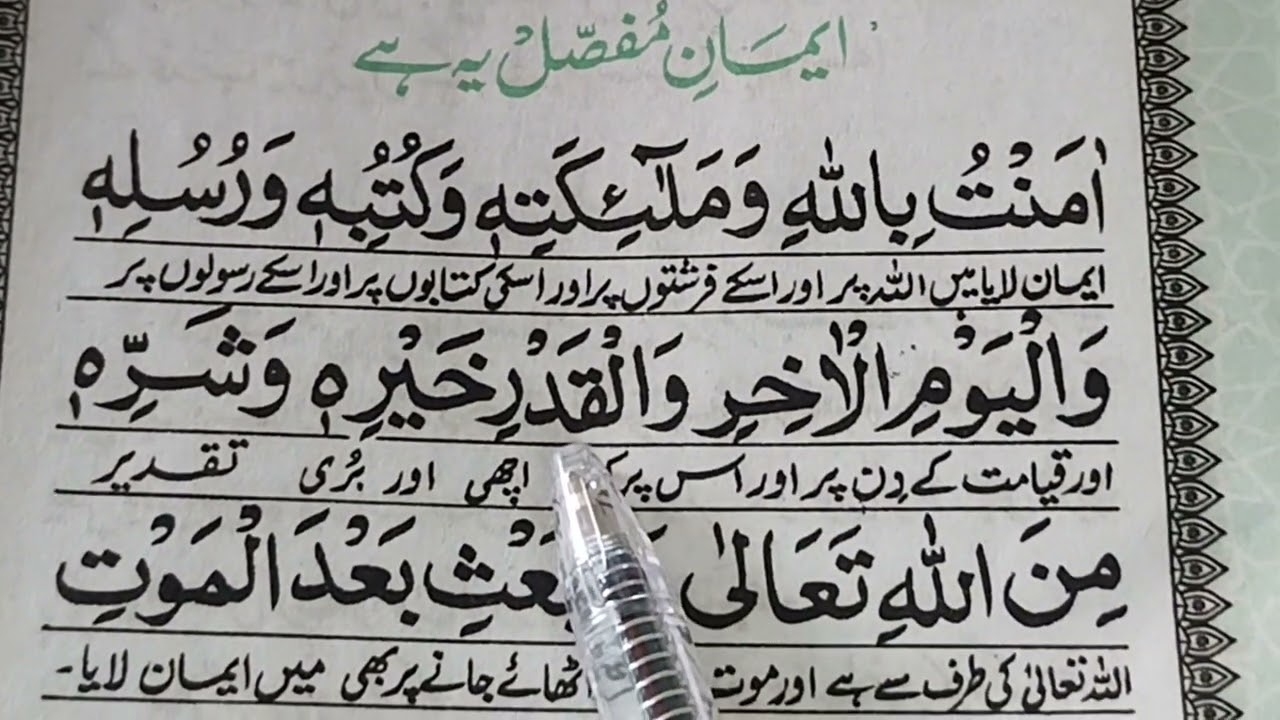 ایمانِ مُفصّلْ یہ ہے
اٰمَنْتُ بِاللّٰهِ وَمَلٰٓئِكَتِهٖ وَكُتُبِهٖ وَرُسُلِهٖ
ایمان لایا میں اللہ پر اور اسکے فرشتوں پر اور اسکی کتابوں پر اور اسکے رسولوں پر
وَالْيَوْمِ الْاٰخِرِ وَالْقَدْرِ خَيْرِهٖ وَشَرِّهٖ
اور قیامت کے دِن پر اور اس پر اچھی اور بُری تقدیر
مِنَ اللّٰهِ تَعَالٰى بَعْدَ الْمَوْتِ
اللہ تعالیٰ کی طرف سے ہے اور موت اٹھائے جانے پر بھی میں ایمان لایا۔